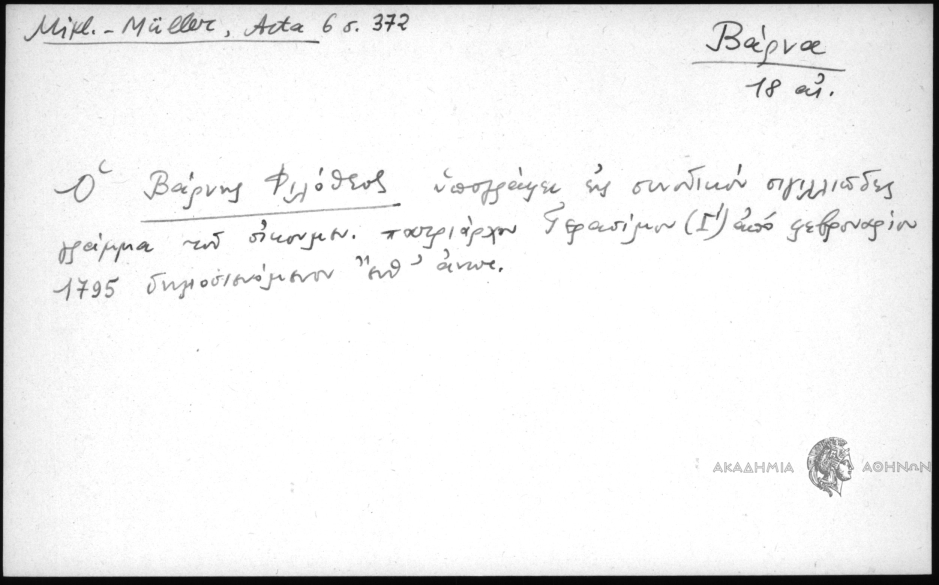 Mikl. - Müller, Acta 6 σ. 372
Βάρνα
18 αἰ.
Ὁ Βάρνης Φιλόθεος ὑπογράφει εἰς συνοδικόν σιγιλλιῶδες
γράμμα τοῦ οἰκουμεν. πατριάρχου Γερασίμου (Γ') ἀπό φεβρουαρίου
1795 δημοσιευόμενον ἔνθ' ἄνωτ.
ΑΚΑΔΗΜΙΑ ΑΘΗΝΩΝ